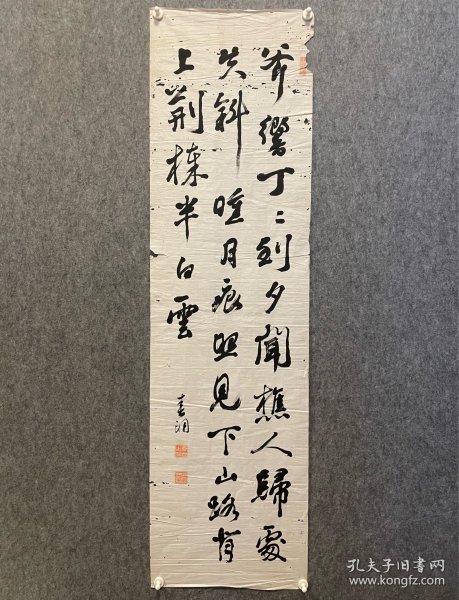 斧響丁〻到夕聞樵人歸處
失斜曛月痕照見下山路背
上荊榛半白雲
孔夫子旧书网
www.kongfz.com